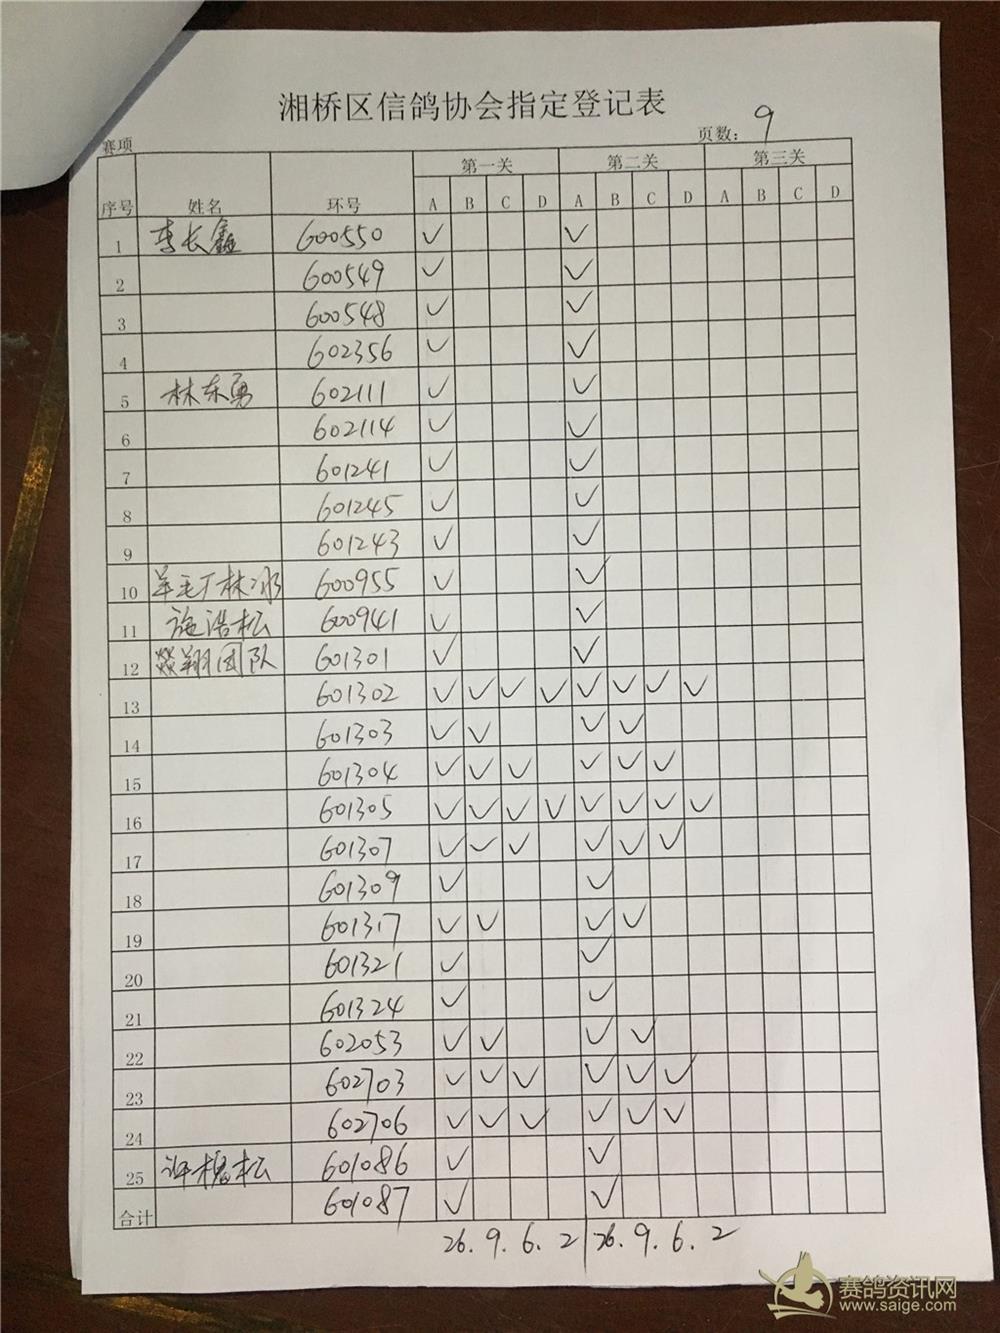 湘桥区信鸽协会指定登记表
赛项 页数: 9
第一关 第二关 第三关
序号 姓名 环号 A B C D A B C D A B C D
1 李长鑫 600550 ✓ ✓
2 600549 ✓ ✓
3 600548 ✓ ✓
4 602356 ✓ ✓
5 林东勇 602111 ✓ ✓
6 602114 ✓ ✓
7 601241 ✓ ✓
8 601245 ✓ ✓
9 601243 ✓ ✓
10 羊毛厂林冰 600955 ✓ ✓
11 施浩松 600941 ✓ ✓
12 翔团队 601301 ✓ ✓
13 601302 ✓ ✓ ✓ ✓ ✓ ✓ ✓ ✓
14 601303 ✓ ✓ ✓ ✓
15 601304 ✓ ✓ ✓ ✓ ✓ ✓
16 601305 ✓ ✓ ✓ ✓ ✓ ✓ ✓ ✓
17 601307 ✓ ✓ ✓ ✓ ✓ ✓
18 601309 ✓ ✓
19 601317 ✓ ✓ ✓ ✓
20 601321 ✓ ✓
21 601324 ✓ ✓
22 602053 ✓ ✓ ✓ ✓
23 602703 ✓ ✓ ✓ ✓ ✓ ✓
24 602706 ✓ ✓ ✓ ✓ ✓ ✓
25 许松 601086 ✓ ✓
合计 601087 ✓ ✓
26. 9. 6. 2 | 26. 9. 6. 2
赛鸽资讯网
www.saige.com